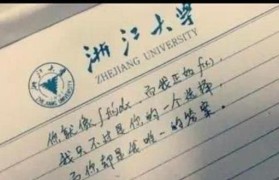 浙江大学
ZHEJIANG UNIVERSITY
你就像∫f(x)dx 而我正如f(x),
我只不过是你的一个选择,
而你却是我唯一的答案。